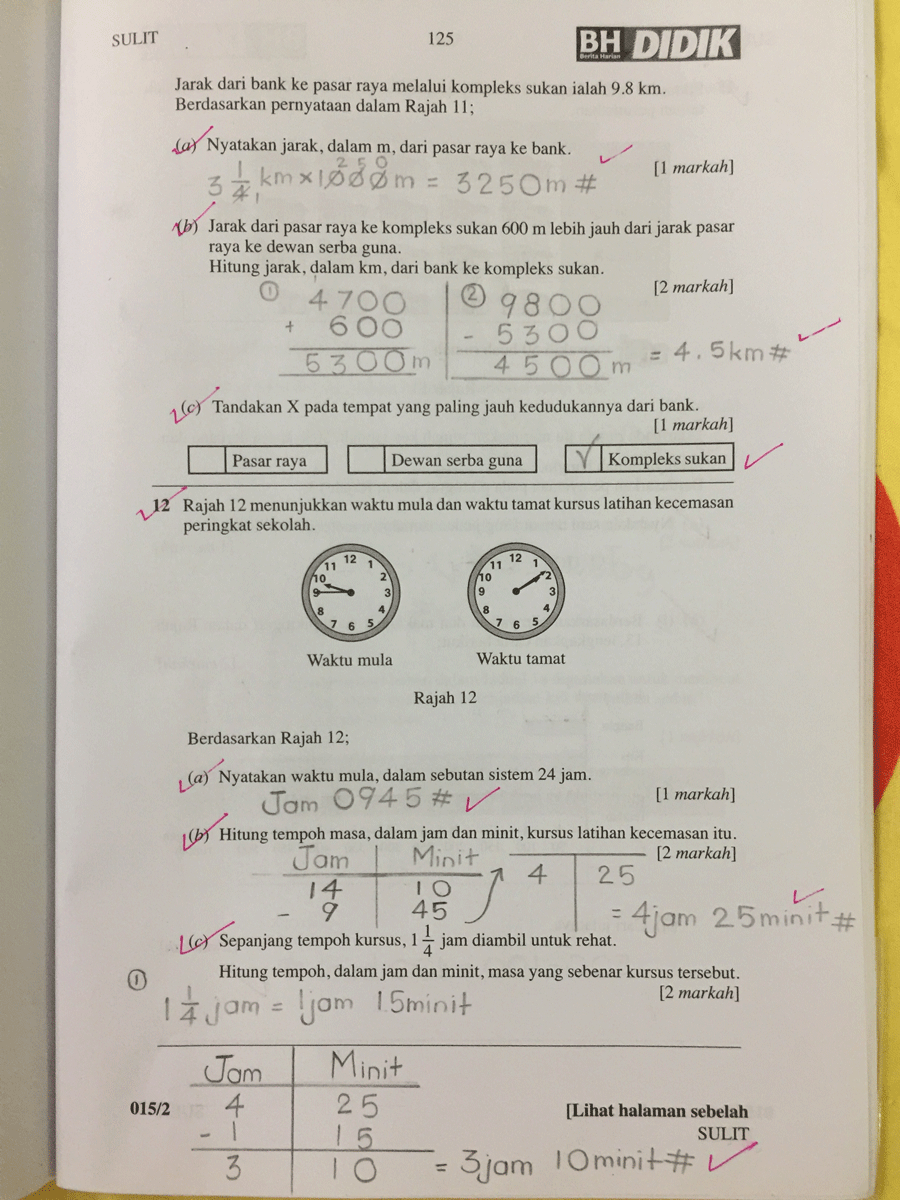 SULIT 125 BH DIDIK
Berita Harian
Jarak dari bank ke pasar raya melalui kompleks sukan ialah 9.8 km.
Berdasarkan pernyataan dalam Rajah 11;
(a) Nyatakan jarak, dalam m, dari pasar raya ke bank.
[1 markah]
2 5 0
3 1/4 km × 1000 m = 3250m #
1
(b) Jarak dari pasar raya ke kompleks sukan 600 m lebih jauh dari jarak pasar
raya ke dewan serba guna.
Hitung jarak, dalam km, dari bank ke kompleks sukan.
[2 markah]
① 1
4700
+ 600
5300m
② 9800
- 5300
4500m = 4.5km #
(c) Tandakan X pada tempat yang paling jauh kedudukannya dari bank.
[1 markah]
Pasar raya Dewan serba guna √ Kompleks sukan
12 Rajah 12 menunjukkan waktu mula dan waktu tamat kursus latihan kecemasan
peringkat sekolah.
12 1 2 3 4 5 6 7 8 9 10 11
12 1 2 3 4 5 6 7 8 9 10 11
Waktu mula Waktu tamat
Rajah 12
Berdasarkan Rajah 12;
(a) Nyatakan waktu mula, dalam sebutan sistem 24 jam.
[1 markah]
Jam 0945 #
(b) Hitung tempoh masa, dalam jam dan minit, kursus latihan kecemasan itu.
[2 markah]
Jam Minit
14 10
- 9 45
4 25
= 4jam 25minit #
(c) Sepanjang tempoh kursus, 1 1/4 jam diambil untuk rehat.
Hitung tempoh, dalam jam dan minit, masa yang sebenar kursus tersebut.
[2 markah]
① 1 1/4 jam = 1jam 15minit
Jam Minit
4 25
- 1 15
3 10 = 3jam 10minit #
015/2 [Lihat halaman sebelah
SULIT